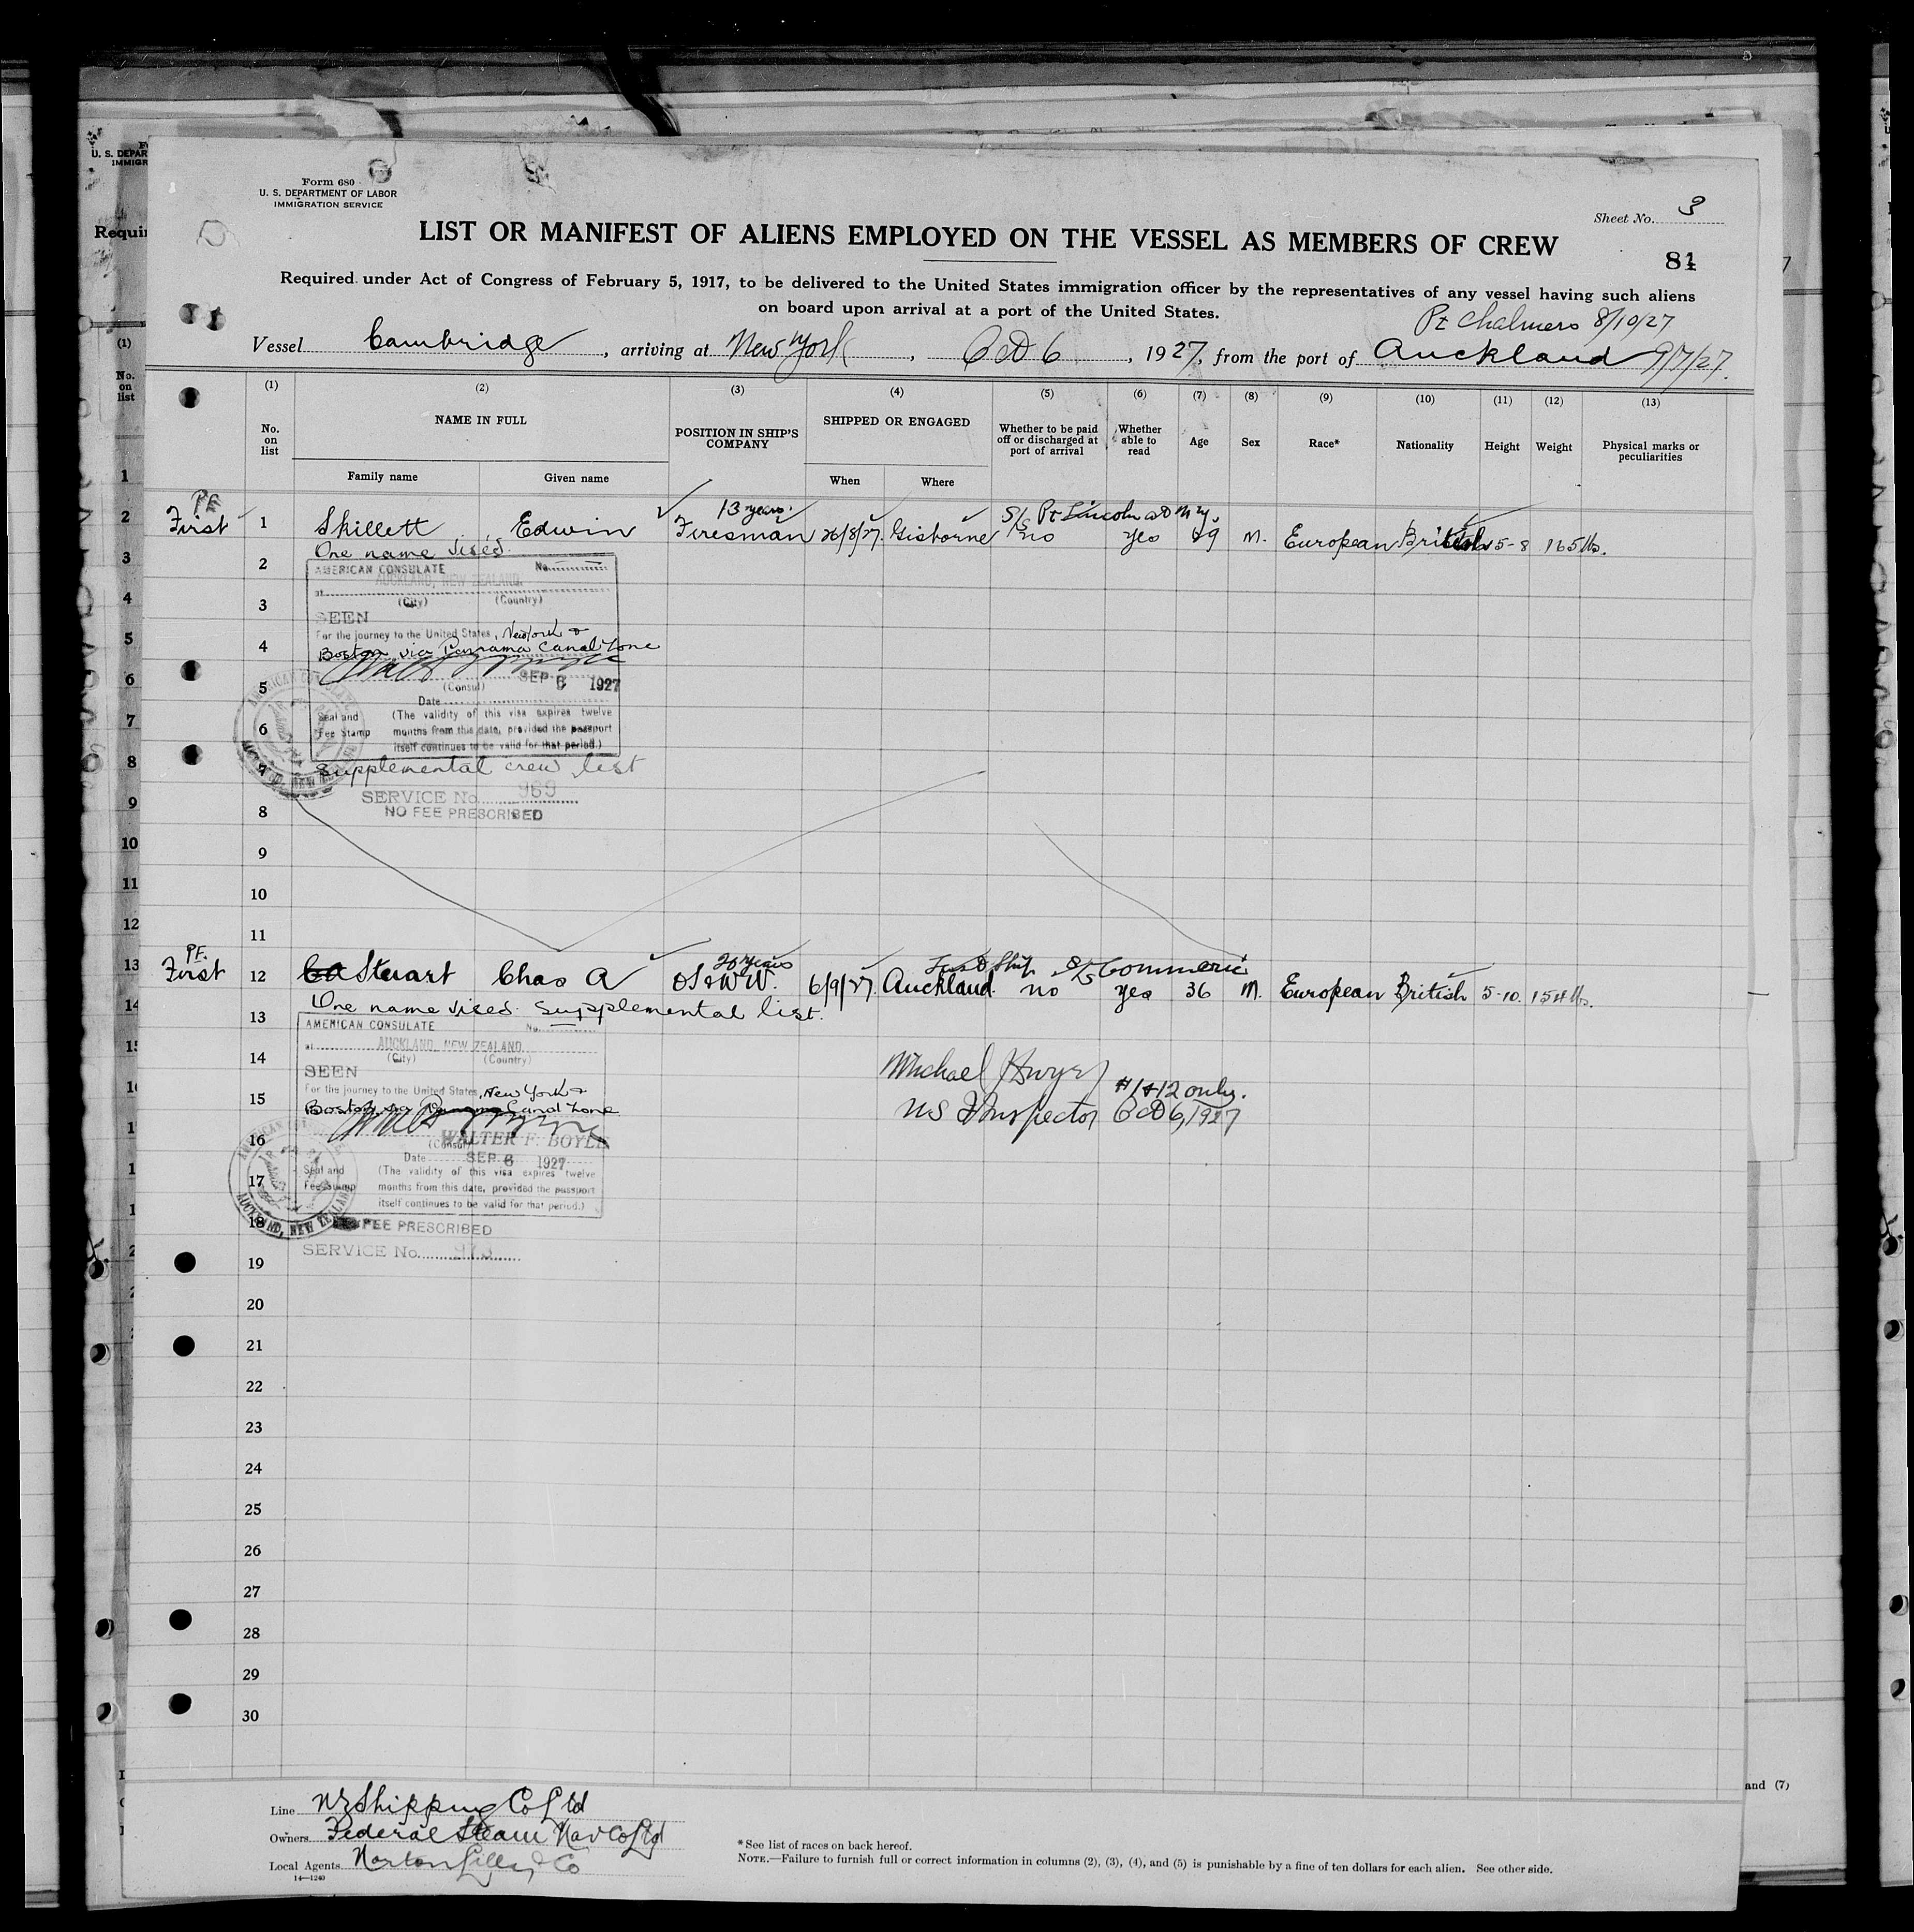 Form 680
U. S. DEPARTMENT OF LABOR
IMMIGRATION SERVICE
Sheet No. 3
LIST OR MANIFEST OF ALIENS EMPLOYED ON THE VESSEL AS MEMBERS OF CREW
81
Required under Act of Congress of February 5, 1917, to be delivered to the United States immigration officer by the representatives of any vessel having such aliens
on board upon arrival at a port of the United States.
Pt Chalmers 8/10/27
Vessel Cambridge, arriving at New York, Oct 6, 1927, from the port of Auckland 9/7/27.
(1) (2) (3) (4) (5) (6) (7) (8) (9) (10) (11) (12) (13)
No. on list NAME IN FULL POSITION IN SHIP'S COMPANY SHIPPED OR ENGAGED Whether to be paid off or discharged at port of arrival Whether able to read Age Sex Race* Nationality Height Weight Physical marks or peculiarities
Family name Given name When Where
13 years. S/S Pt Lincoln
First 1 Skillett Edwin Fireman 26/8/27. Gisborne no yes 29 M. European British 5-8 165 lbs.
One name vised.
2 AMERICAN CONSULATE No.
at AUCKLAND, NEW ZEALAND.
3 (City) (Country)
SEEN
For the journey to the United States, New York &
4 Boston via Panama Canal Zone
SEP 6 1927
5 (Consul)
Date
Seal and (The validity of this visa expires twelve
6 Fee Stamp months from this date, provided the passport
itself continues to be valid for that period.)
7 Supplemental crew list
SERVICE No. 969
8 NO FEE PRESCRIBED
9
10
11
P.F. 20 years S/S Commeric
First 12 Stuart Chas A 6/9/27. Auckland. no yes 36 M. European British 5-10. 154 lbs.
One name vised. Supplemental list.
13 AMERICAN CONSULATE No.
at AUCKLAND, NEW ZEALAND.
14 (City) (Country)
SEEN
For the journey to the United States, New York &
15 Boston via Panama Canal Zone
#1 & 12 only.
US Inspector Oct 6, 1927
16 WALTER F. BOYLE
(Consul)
Date SEP 6 1927
Seal and (The validity of this visa expires twelve
17 Fee Stamp months from this date, provided the passport
itself continues to be valid for that period.)
18 FEE PRESCRIBED
SERVICE No. 973
19
20
21
22
23
24
25
26
27
28
29
30
Line NZ Shipping Co Ltd
Owners Federal Steam Nav Co Ltd
Local Agents Norton Lilly & Co
14—1240
*See list of races on back hereof.
NOTE.—Failure to furnish full or correct information in columns (2), (3), (4), and (5) is punishable by a fine of ten dollars for each alien. See other side.
and (7)